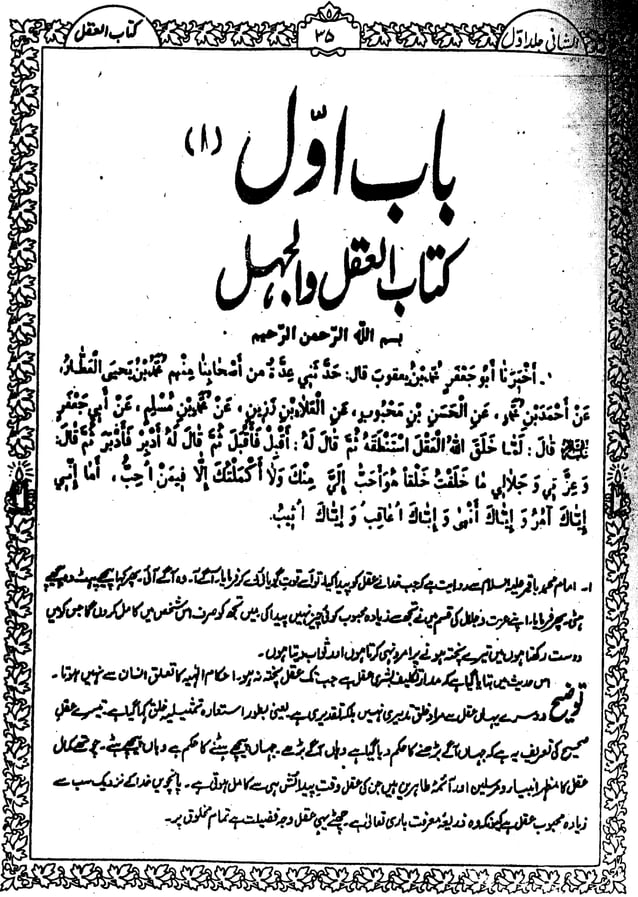 الشافی جلد اوّل
۳۵
کتاب العقل
باب اوّل (۱)
کتاب العقل والجہل
بسم اللہ الرّحمن الرّحیم
۱. أَخْبَرَنَا أَبُو جَعْفَرٍ مُحَمَّدُ بْنُ يَعْقُوبَ قَالَ: حَدَّثَنِي عِدَّةٌ مِنْ أَصْحَابِنَا مِنْهُمْ مُحَمَّدُ بْنُ يَحْيَى الْعَطَّارُ،
عَنْ أَحْمَدَ بْنِ مُحَمَّدٍ، عَنِ الْحَسَنِ بْنِ مَحْبُوبٍ، عَنِ الْعَلَاءِ بْنِ رَزِينٍ، عَنْ مُحَمَّدِ بْنِ مُسْلِمٍ، عَنْ أَبِي جَعْفَرٍ
قَالَ: لَمَّا خَلَقَ اللهُ الْعَقْلَ اسْتَنْطَقَهُ ثُمَّ قَالَ لَهُ: أَقْبِلْ فَأَقْبَلَ ثُمَّ قَالَ لَهُ أَدْبِرْ فَأَدْبَرَ ثُمَّ قَالَ:
وَ عِزَّتِي وَ جَلَالِي مَا خَلَقْتُ خَلْقاً هُوَ أَحَبُّ إِلَيَّ مِنْكَ وَلَا أَكْمَلْتُكَ إِلَّا فِيمَنْ أُحِبُّ، أَمَا إِنِّي
إِيَّاكَ آمُرُ وَ إِيَّاكَ أَنْهَى وَ إِيَّاكَ أُعَاقِبُ وَ إِيَّاكَ أُثِيبُ.
۱۔ امام محمد باقر علیہ السلام سے روایت ہے کہ جب خدا نے عقل کو پیدا کیا تو اسے قوت گویائی دے کر فرمایا۔ آگے آ۔ وہ آگے آئی۔ پھر کہا پیچھے ہٹ وہ پیچھے
ہٹی، پھر فرمایا۔ اپنے عزت و جلال کی قسم میں نے تجھ سے زیادہ محبوب کوئی چیز نہیں پیدا کی۔ میں تجھ کو صرف اس شخص میں کامل کروں گا جس کو میں
دوست رکھتا ہوں میں تیرے پختہ ہونے پر امر و نہی کرتا ہوں اور ثواب دیتا ہوں۔
توضیح اس حدیث میں بتایا گیا ہے کہ مدار تکلیف بشری عقل ہے جب تک عقل پختہ نہ ہو۔ احکام الٰہیہ کا تعلق انسان سے نہیں ہوتا۔
دوسرے پہلی عقل سے مراد خلق تدبیری نہیں بلکہ تقدیری ہے۔ یعنی بطور استعارہ تمثیلیہ خلق کہا گیا ہے۔ تیسرے عقل
صحیح کی تعریف یہ ہے کہ جہاں آگے بڑھنے کا حکم دیا گیا ہے وہاں آگے بڑھے۔ جہاں پیچھے ہٹنے کا حکم ہے وہاں پیچھے ہٹے۔ چوتھے کمال
عقل کا مظہر انبیاء و مرسلین اور آئمہ طاہرین ہیں جن کی عقل وقت پیدائش ہی سے کامل ہوتی ہے۔ پانچویں خدا کے نزدیک سب سے
زیادہ محبوب عقل ہے کیونکہ وہ ذریعۂ معرفت باری تعالیٰ ہے۔ چھٹے یہی عقل وجہ فضیلت ہے تمام مخلوق پر۔